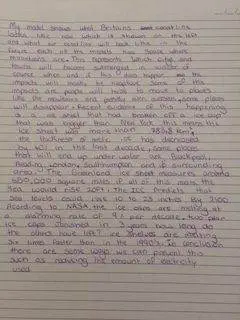 My model shows what Britains coastline
looks like now which is shown on the left
and what our coastline will look like in the
future each of the models has space where
mountains are. This represents which cities and
towns will become submerged in water of
course when and if this does happen the
impacts will mostly be negative some of the
impacts are people will have to move to places
like the mountains and possibly with evasion, some places
will disappear. Recent evidence of this happening
is a ice shelf that had broken off of ice cap
that was bigger than New York this means the
ice shelf was more than 783.8 km²,
the thickness of arctic ice has decreased
by 40% in the last decade, some places
that will end up under water are Blackpool,
Reading, London, Southampton and all surrounding
areas. The Greenland ice sheet measures around
650,000 squares miles if all of this melts the
Sea would rise 20ft. The IPCC Predicts that
Sea levels could rise 10 to 23 inches By 2100
According to NASA the ice caps are melting at
a alarming rate of 9% per decade, two polar
ice caps vanished in 3 years how long do
the others have left? ice shelves are melting
Six times faster than in the 1990's. In conclusion
there are some ways we can prevent this
such as reducing the amount of electricity
used